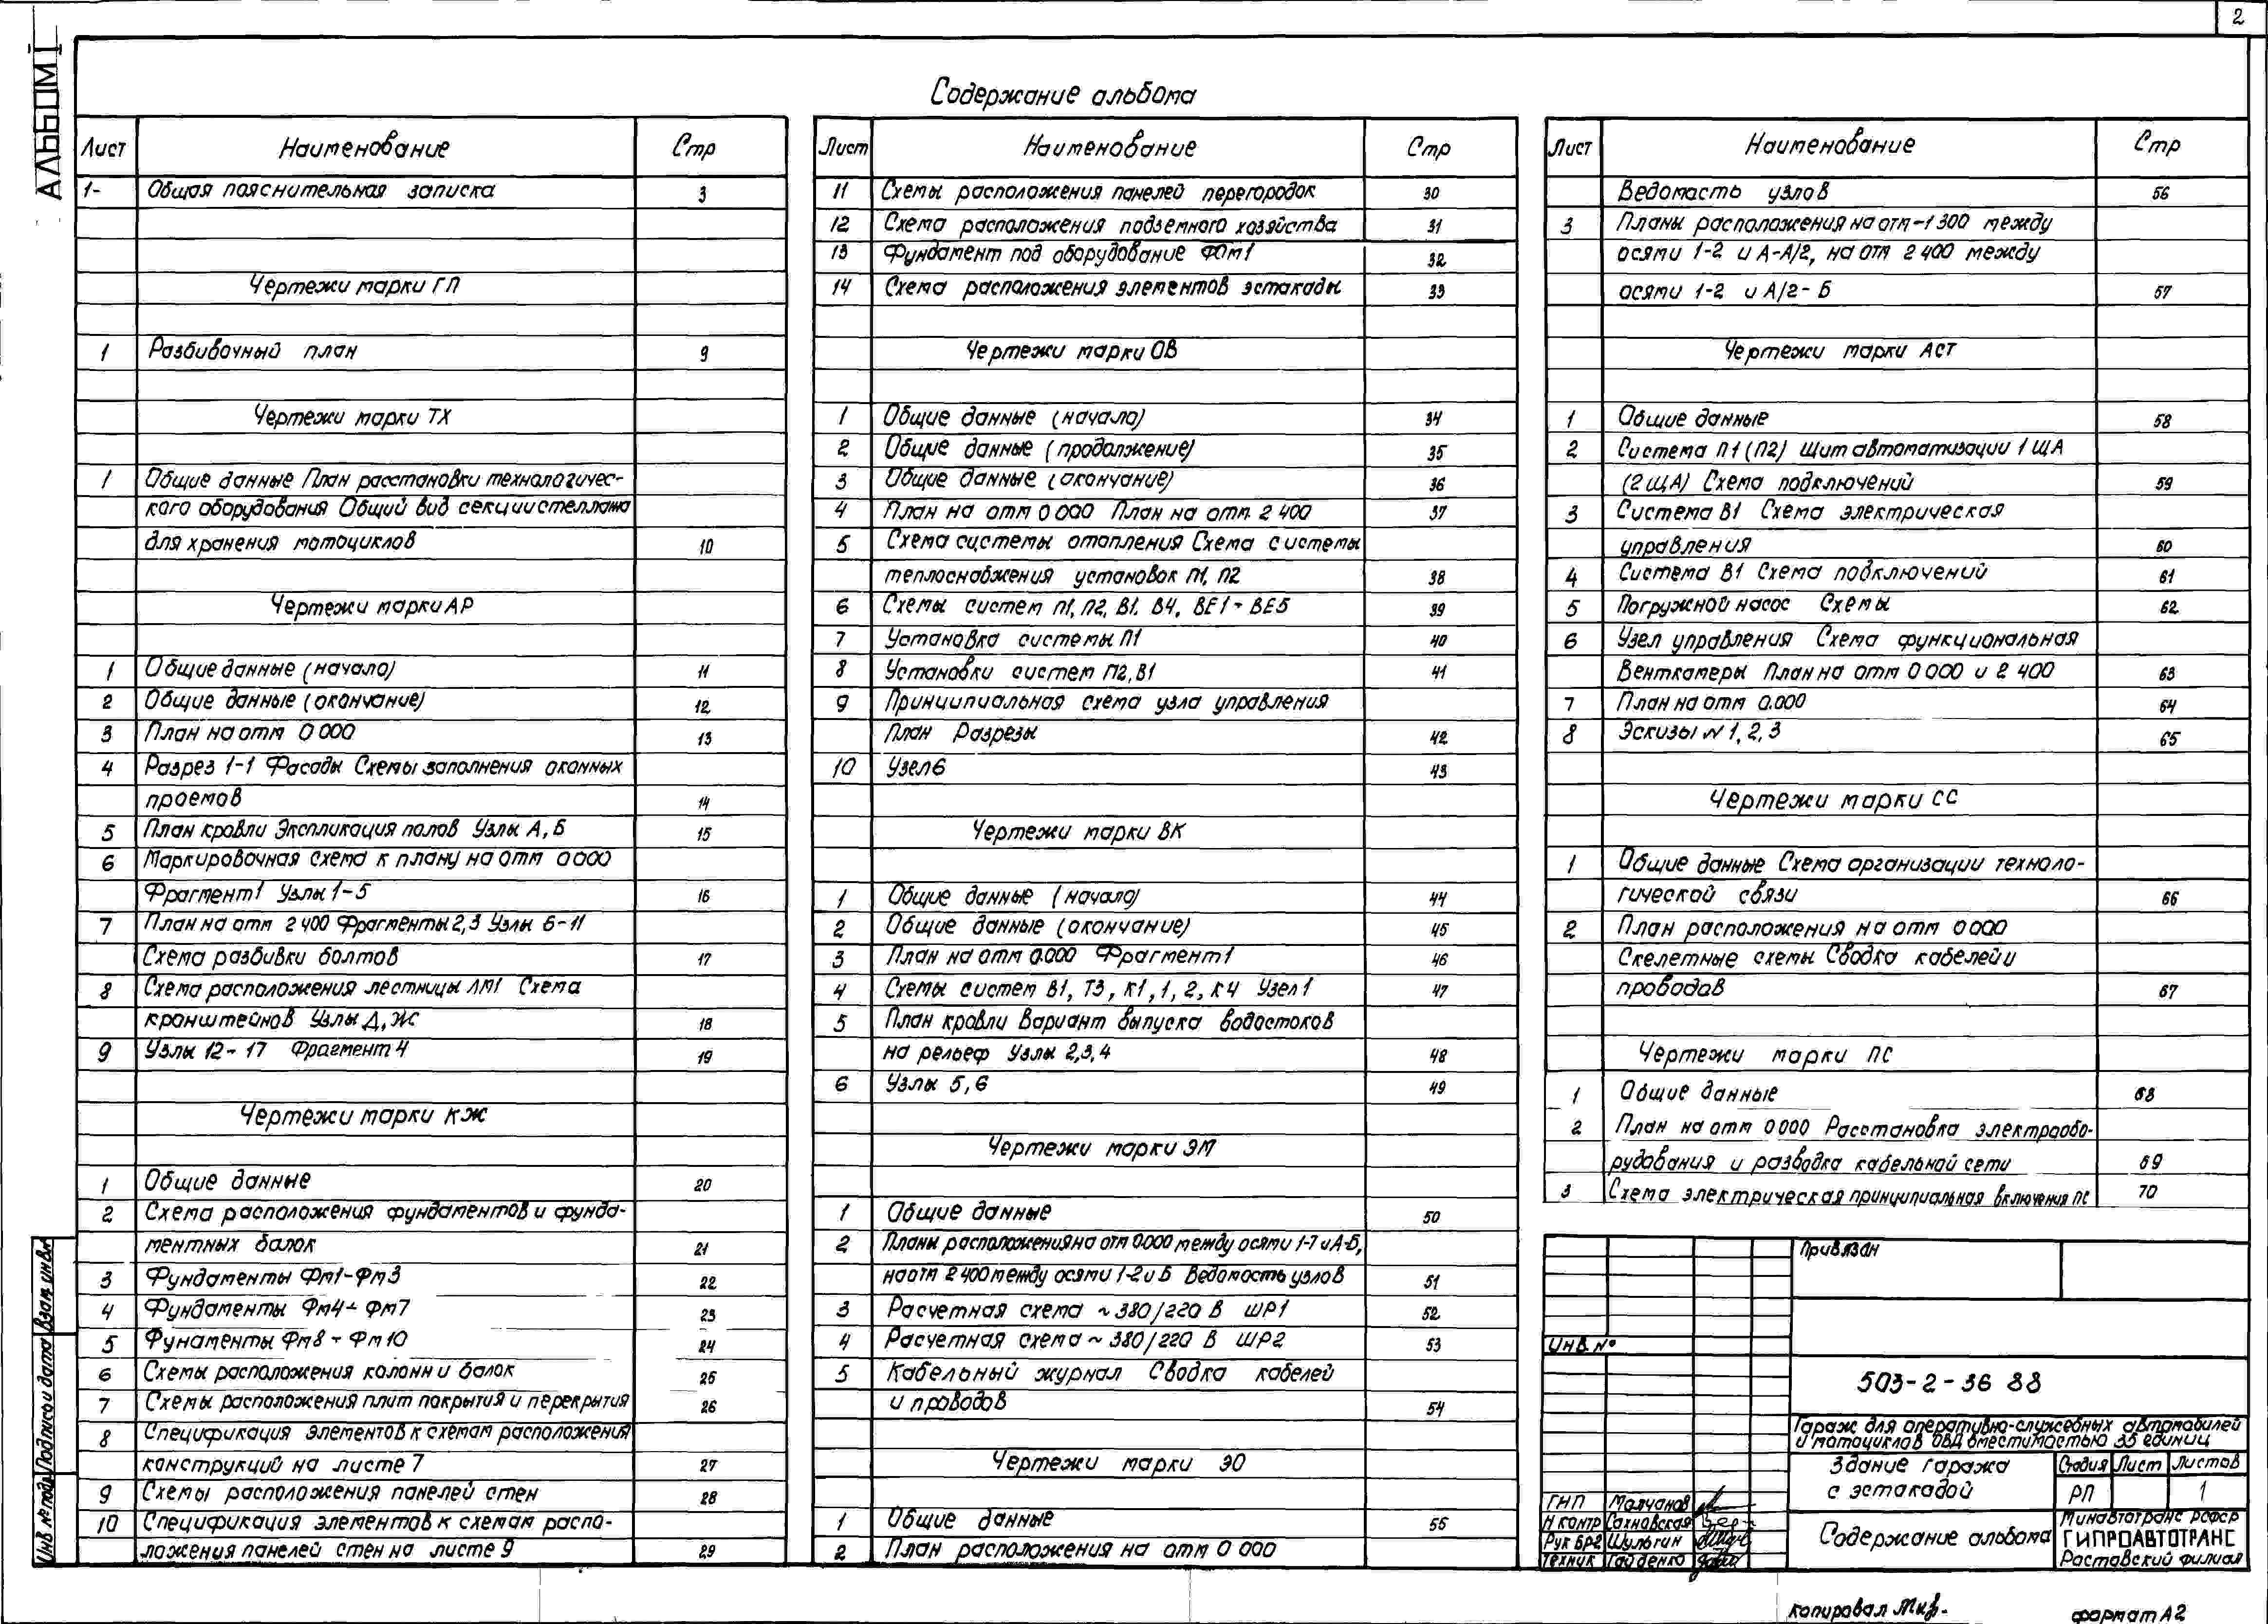 2
АЛЬБОМ I
Содержание альбома
Лист Наименование Стр
1- Общая пояснительная записка 3
Чертежи марки ГП
1 Разбивочный план 9
Чертежи марки ТХ
1 Общие данные План расстановки технологичес-
кого оборудования Общий вид секции стеллажа
для хранения мотоциклов 10
Чертежи марки АР
1 Общие данные (начало) 11
2 Общие данные (окончание) 12
3 План на отм 0 000 13
4 Разрез 1-1 Фасады Схемы заполнения оконных
проемов 14
5 План кровли Экспликация полов Узлы А, Б 15
6 Маркировочная схема к плану на отм 0 000
Фрагмент 1 Узлы 1-5 16
7 План на отм 2 400 Фрагменты 2,3 Узлы 6-11
Схема разбивки болтов 17
8 Схема расположения лестницы ЛМ1 Схема
кронштейнов Узлы Д, Ж 18
9 Узлы 12-17 Фрагмент 4 19
Чертежи марки КЖ
1 Общие данные 20
2 Схема расположения фундаментов и фунда-
ментных балок 21
3 Фундаменты Фм1-Фм3 22
4 Фундаменты Фм4-Фм7 23
5 Фунаменты Фм8-Фм10 24
6 Схемы расположения колонн и балок 25
7 Схемы расположения плит покрытия и перекрытия 26
8 Спецификация элементов к схемам расположения
конструкций на листе 7 27
9 Схемы расположения панелей стен 28
10 Спецификация элементов к схемам распо-
ложения панелей стен на листе 9 29
Лист Наименование Стр
11 Схемы расположения панелей перегородок 30
12 Схема расположения подземного хозяйства 31
13 Фундамент под оборудование ФОм1 32
14 Схема расположения элементов эстакады 33
Чертежи марки ОВ
1 Общие данные (начало) 34
2 Общие данные (продолжение) 35
3 Общие данные (окончание) 36
4 План на отм 0 000 План на отм 2 400 37
5 Схема системы отопления Схема системы
теплоснабжения установок П1, П2 38
6 Схемы систем П1, П2, В1, В4, ВЕ1-ВЕ5 39
7 Установка системы П1 40
8 Установки систем П2, В1 41
9 Принципиальная схема узла управления
План Разрезы 42
10 Узел 6 43
Чертежи марки ВК
1 Общие данные (начало) 44
2 Общие данные (окончание) 45
3 План на отм 0.000 Фрагмент 1 46
4 Схемы систем В1, Т3, К1, 1, 2, К4 Узел 1 47
5 План кровли Вариант выпуска водостоков
на рельеф Узлы 2,3,4 48
6 Узлы 5,6 49
Чертежи марки ЭМ
1 Общие данные 50
2 Планы расположения на отм 0.000 между осями 1-7 и А-Б,
на отм 2 400 между осями 1-2 и Б Ведомость узлов 51
3 Расчетная схема ~ 380/220 В ШР1 52
4 Расчетная схема ~ 380/220 В ШР2 53
5 Кабельный журнал Сводка кабелей
и проводов 54
Чертежи марки ЭО
1 Общие данные 55
2 План расположения на отм 0 000
Лист Наименование Стр
Ведомасть узлов 56
3 Планы расположения на отм -1 300 между
осями 1-2 и А-А/2, на отм 2 400 между
осями 1-2 и А/2-Б 57
Чертежи марки АСТ
1 Общие данные 58
2 Система П1 (П2) Щит автоматизации 1 ЩА
(2 ЩА) Схема подключений 59
3 Система В1 Схема электрическая
управления 60
4 Система В1 Схема подключений 61
5 Погружной насос Схемы 62
6 Узел управления Схема функциональная
Венткамеры План на отм 0 000 и 2 400 63
7 План на отм 0.000 64
8 Эскизы N 1, 2, 3 65
Чертежи марки СС
1 Общие данные Схема организации техноло-
гической связи 66
2 План расположения на отм 0 000
Скелетные схемы Сводка кабелей и
проводов 67
Чертежи марки ПС
1 Общие данные 68
2 План на отм 0 000 Расстановка электрообо-
рудования и разводка кабельной сети 69
3 Схема электрическая принципиальная включения ПС 70
Привязан
Инв. №
503-2-36 88
Гараж для оперативно-служебных автомобилей
и мотоциклов ОВД вместимостью 35 единиц
Здание гаража
с эстакадой
Стадия Лист Листов
РП 1
ГНП Молчанов
Н контр Сахновская
Рук бр2 Шульгин
Техник Гайденко
Содержание альбома
Минавтотранс РСФСР
ГИПРОАВТОТРАНС
Ростовский филиал
Инв № подл Подпись и дата Взам инв №
копировал
формат А2